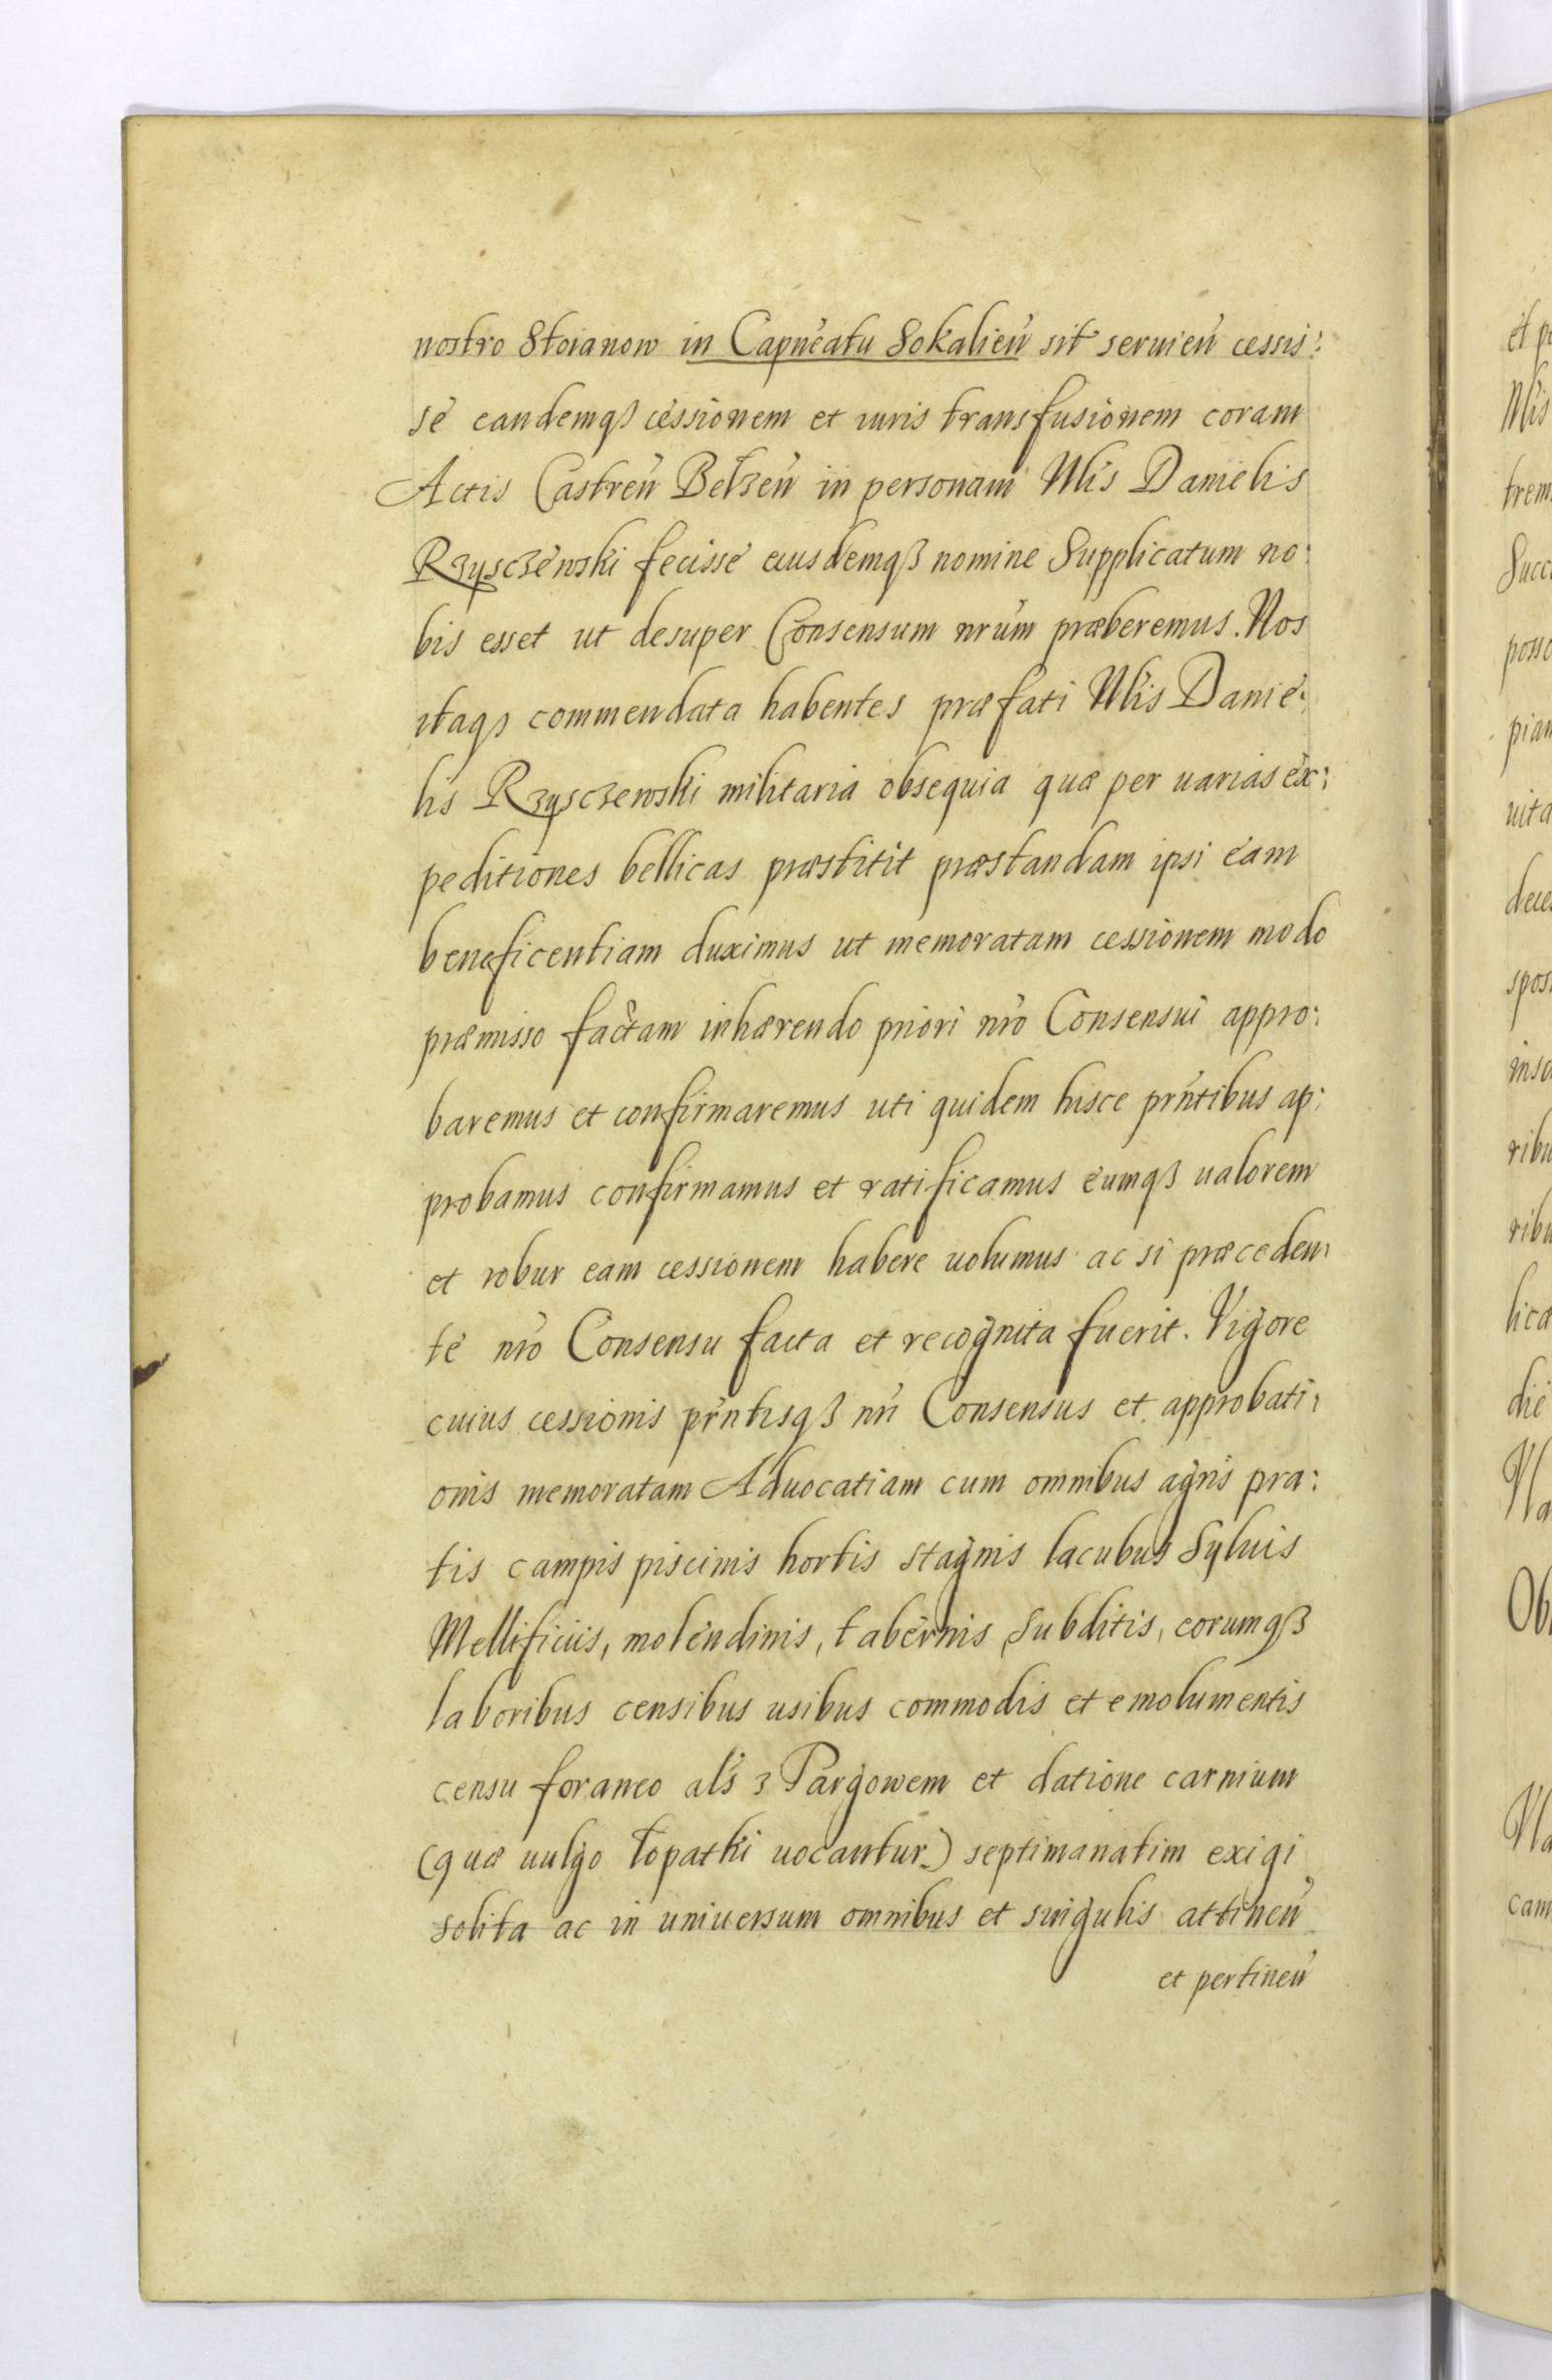 nostro Stoianow in Capneatu Sokalien sit seruien cessis:
se eandemqꝫ cessionem et iuris transfusionem coram
Actis Castren Belzen in personam Mlis Danielis
Rzysczewski fecisse eiusdemqꝫ nomine Supplicatum no:
bis esset ut desuper Consensum nrum præberemus. Nos
itaqꝫ commendata habentes præfati Mlis Danie:
lis Rzysczewski militaria obsequia quæ per uarias ex:
peditiones bellicas præstitit præstandam ipsi eam
beneficentiam duximus ut memoratam cessionem modo
præmisso factam inhærendo priori nro Consensui appro:
baremus et confirmaremus uti quidem hisce prntibus ap:
probamus confirmamus et ratificamus eumqꝫ ualorem
et robur eam cessionem habere uolumus ac si præceden:
te nro Consensu facta et recognita fuerit. Vigore
cuius cessionis prntisqꝫ nri Consensus et approbati:
onis memoratam Aduocatiam cum omnibus agris pra:
tis campis piscinis hortis stagnis lacubus Syluis
Mellificiis, molendinis, tabernis, Subditis, eorumqꝫ
laboribus censibus usibus commodis et emolumentis
censu foraneo als z Targowem et datione carnium
(quæ uulgo łopatki uocantur) septimanatim exigi
solita ac in uniuersum omnibus et singulis attinen
et pertinen